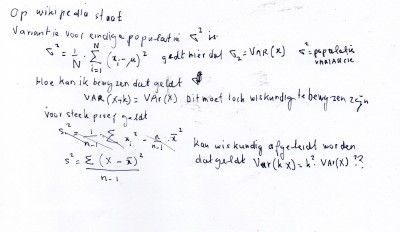 Op wikipedia staat
Variantie voor eindige populatie σ² is
σ² = 1/N · Σ_{i=1}^{N} (x_i - μ)² geldt hier dat σ₂ = VAR(X) σ² = populatie VARIANCIE
Hoe kan ik bewijzen dat geldt
VAR(X+k) = VAR(X) Dit moet toch wiskundig te bewijzen zijn
Voor steekproef geldt
s² = Σ(X - x̄)² / n-1
Kan wiskundig afgeleid worden
dat geldt Var(kX) = k² · VAR(X) ??